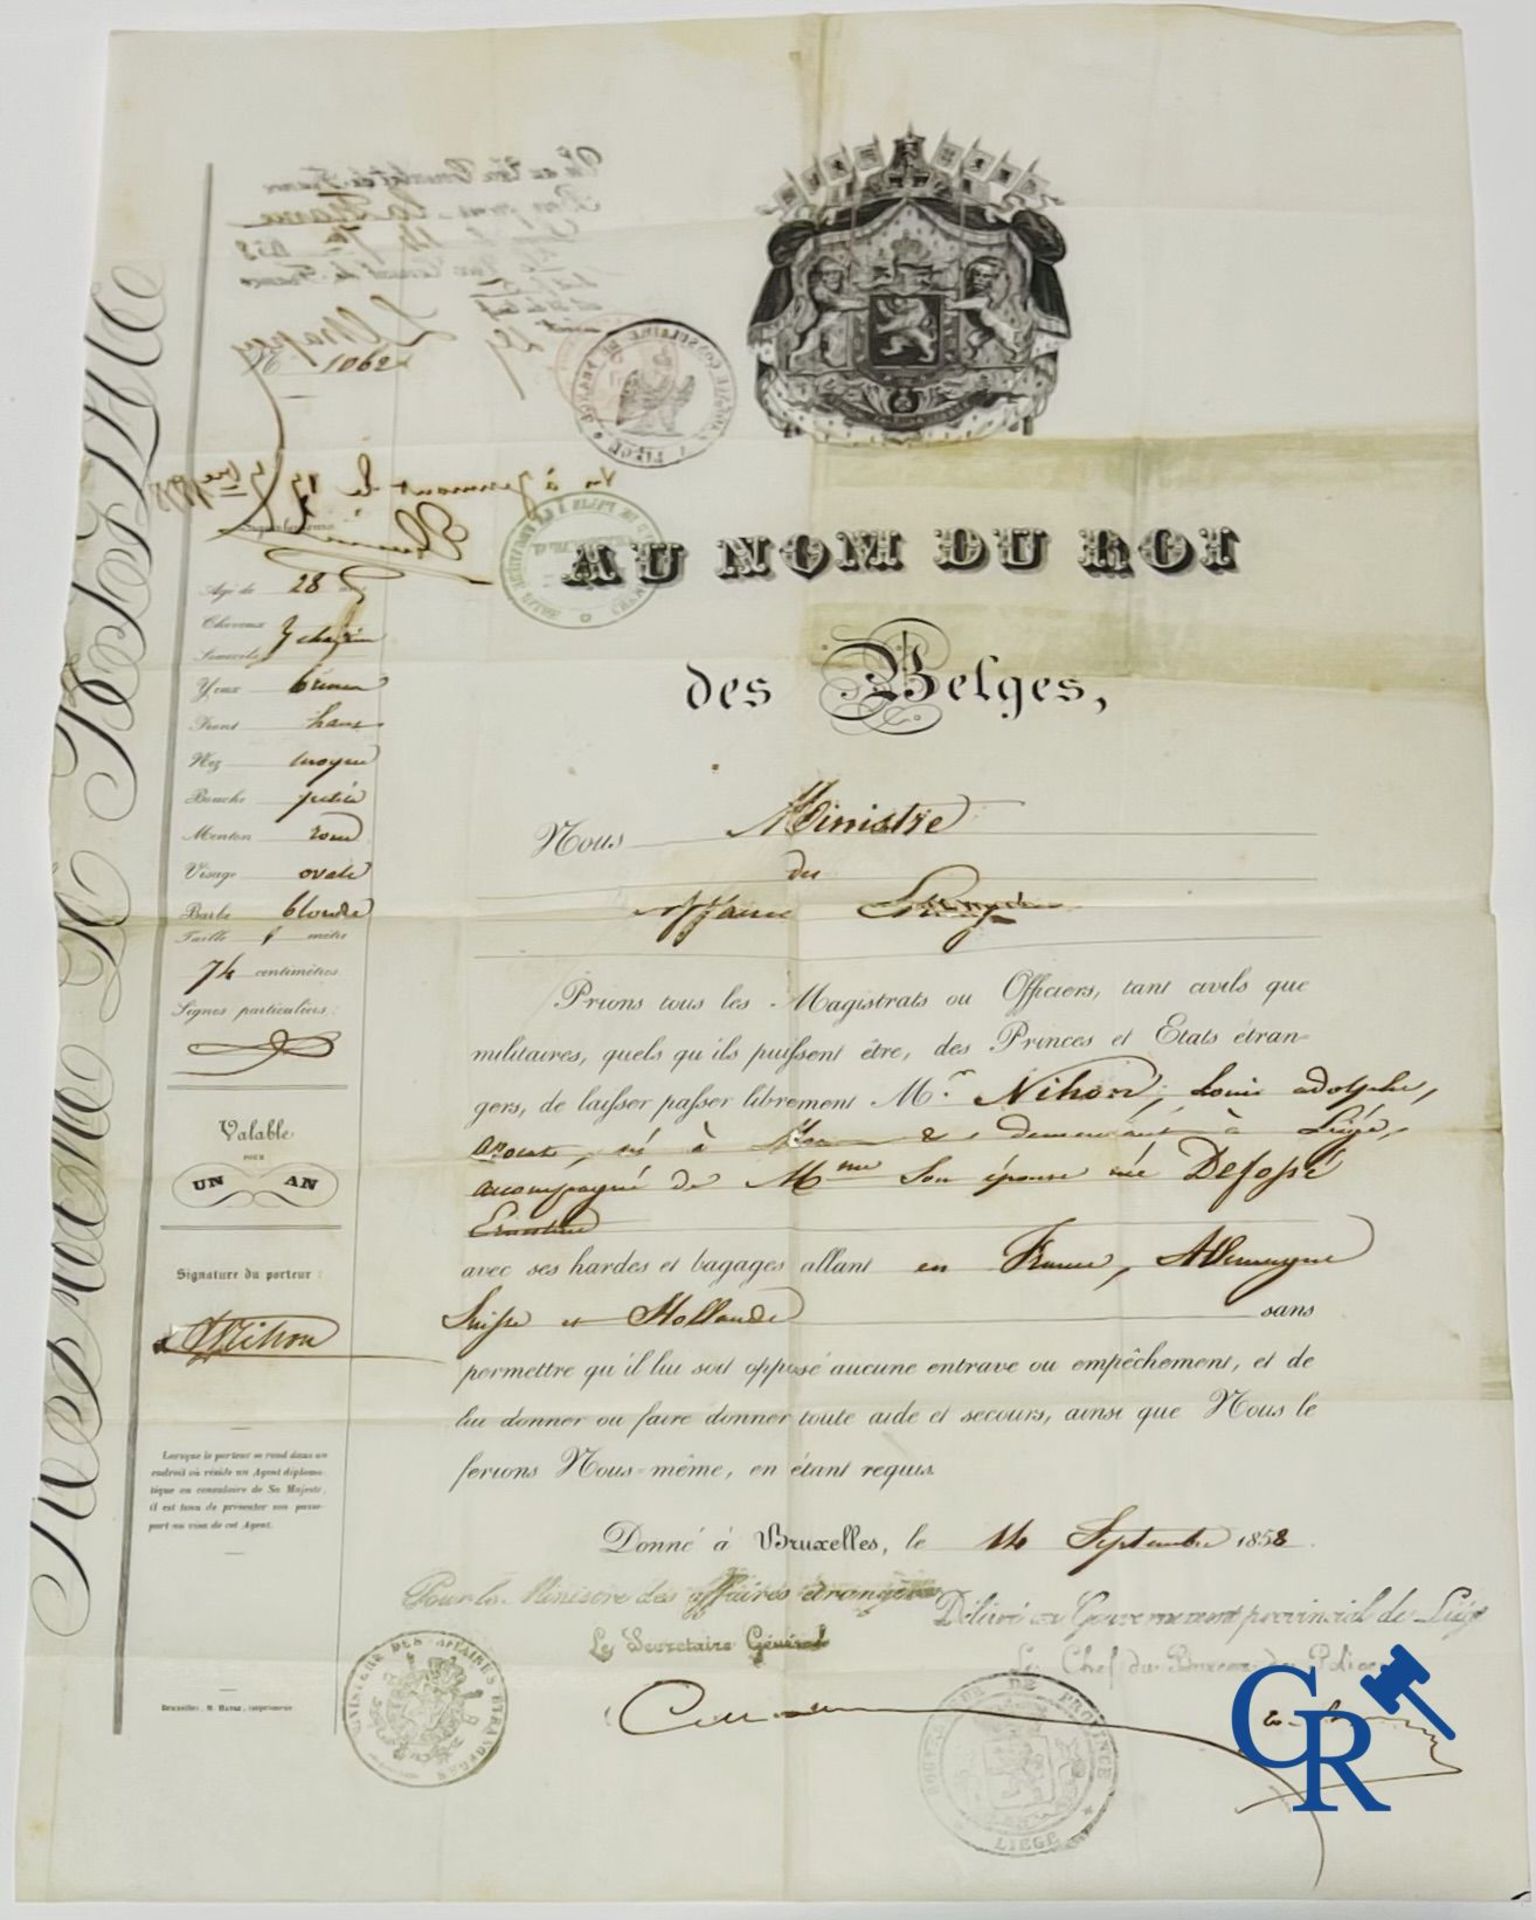 N° 1062
Agé de 28
Cheveux
Sourcils
Yeux bruns
Front haut
Nez moyen
Bouche petite
Menton rond
Visage ovale
Barbe blonde
Taille 1 mètre
74 centimètres
Signes particuliers:
Valable
POUR
UN AN
Signature du porteur:
Nihon
Lorsque le porteur se rend dans un
endroit où réside un Agent diploma-
tique ou consulaire de Sa Majesté,
il est tenu de présenter son passe-
port au visa de cet Agent.
AU NOM DU ROI
des Belges,
Nous Ministre
des
Affaires Etrangères
Prions tous les Magistrats ou Officiers, tant civils que
militaires, quels qu'ils puissent être, des Princes et Etats étran-
gers, de laisser passer librement Mr. Nihon, Louis adolphe,
né à demeurant à Liége,
accompagné de Mme Son épouse née Defossé
Ernestine
avec ses hardes et bagages allant en France, Allemagne
Suisse et Hollande sans
permettre qu'il lui soit opposé aucune entrave ou empêchement, et de
lui donner ou faire donner toute aide et secours, ainsi que Nous le
ferions Nous-même, en étant requis.
Donné à Bruxelles, le 14 Septembre 1858.
Pour le Ministre des affaires étrangères
Le Secretaire Général
Délivré au Gouvernement provincial de Liége
Le Chef du Bureau de Police
MINISTERE DES AFFAIRES ETRANGERES
GOUVERNEUR DE PROVINCE
LIEGE
CR